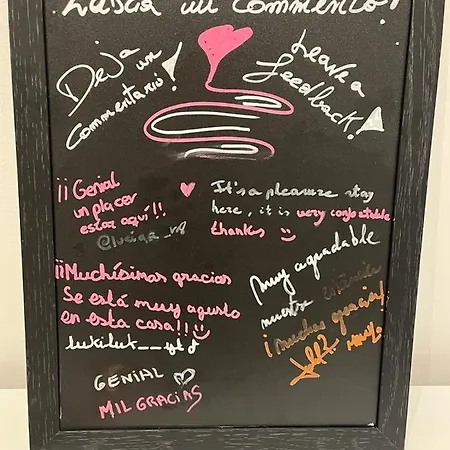 Lascia un commento!
Deja un
commentario!
Leave a
feedback!
¡¡Genial
un placer
estar aquí!!
It's a pleasure stay
here, it is very confortable,
thanks
¡¡Muchísimas gracias
Se está muy agusto
en esta casa!!
Muy agradable
nuestra
¡muchas gracias!
GENIAL
MIL GRACIAS